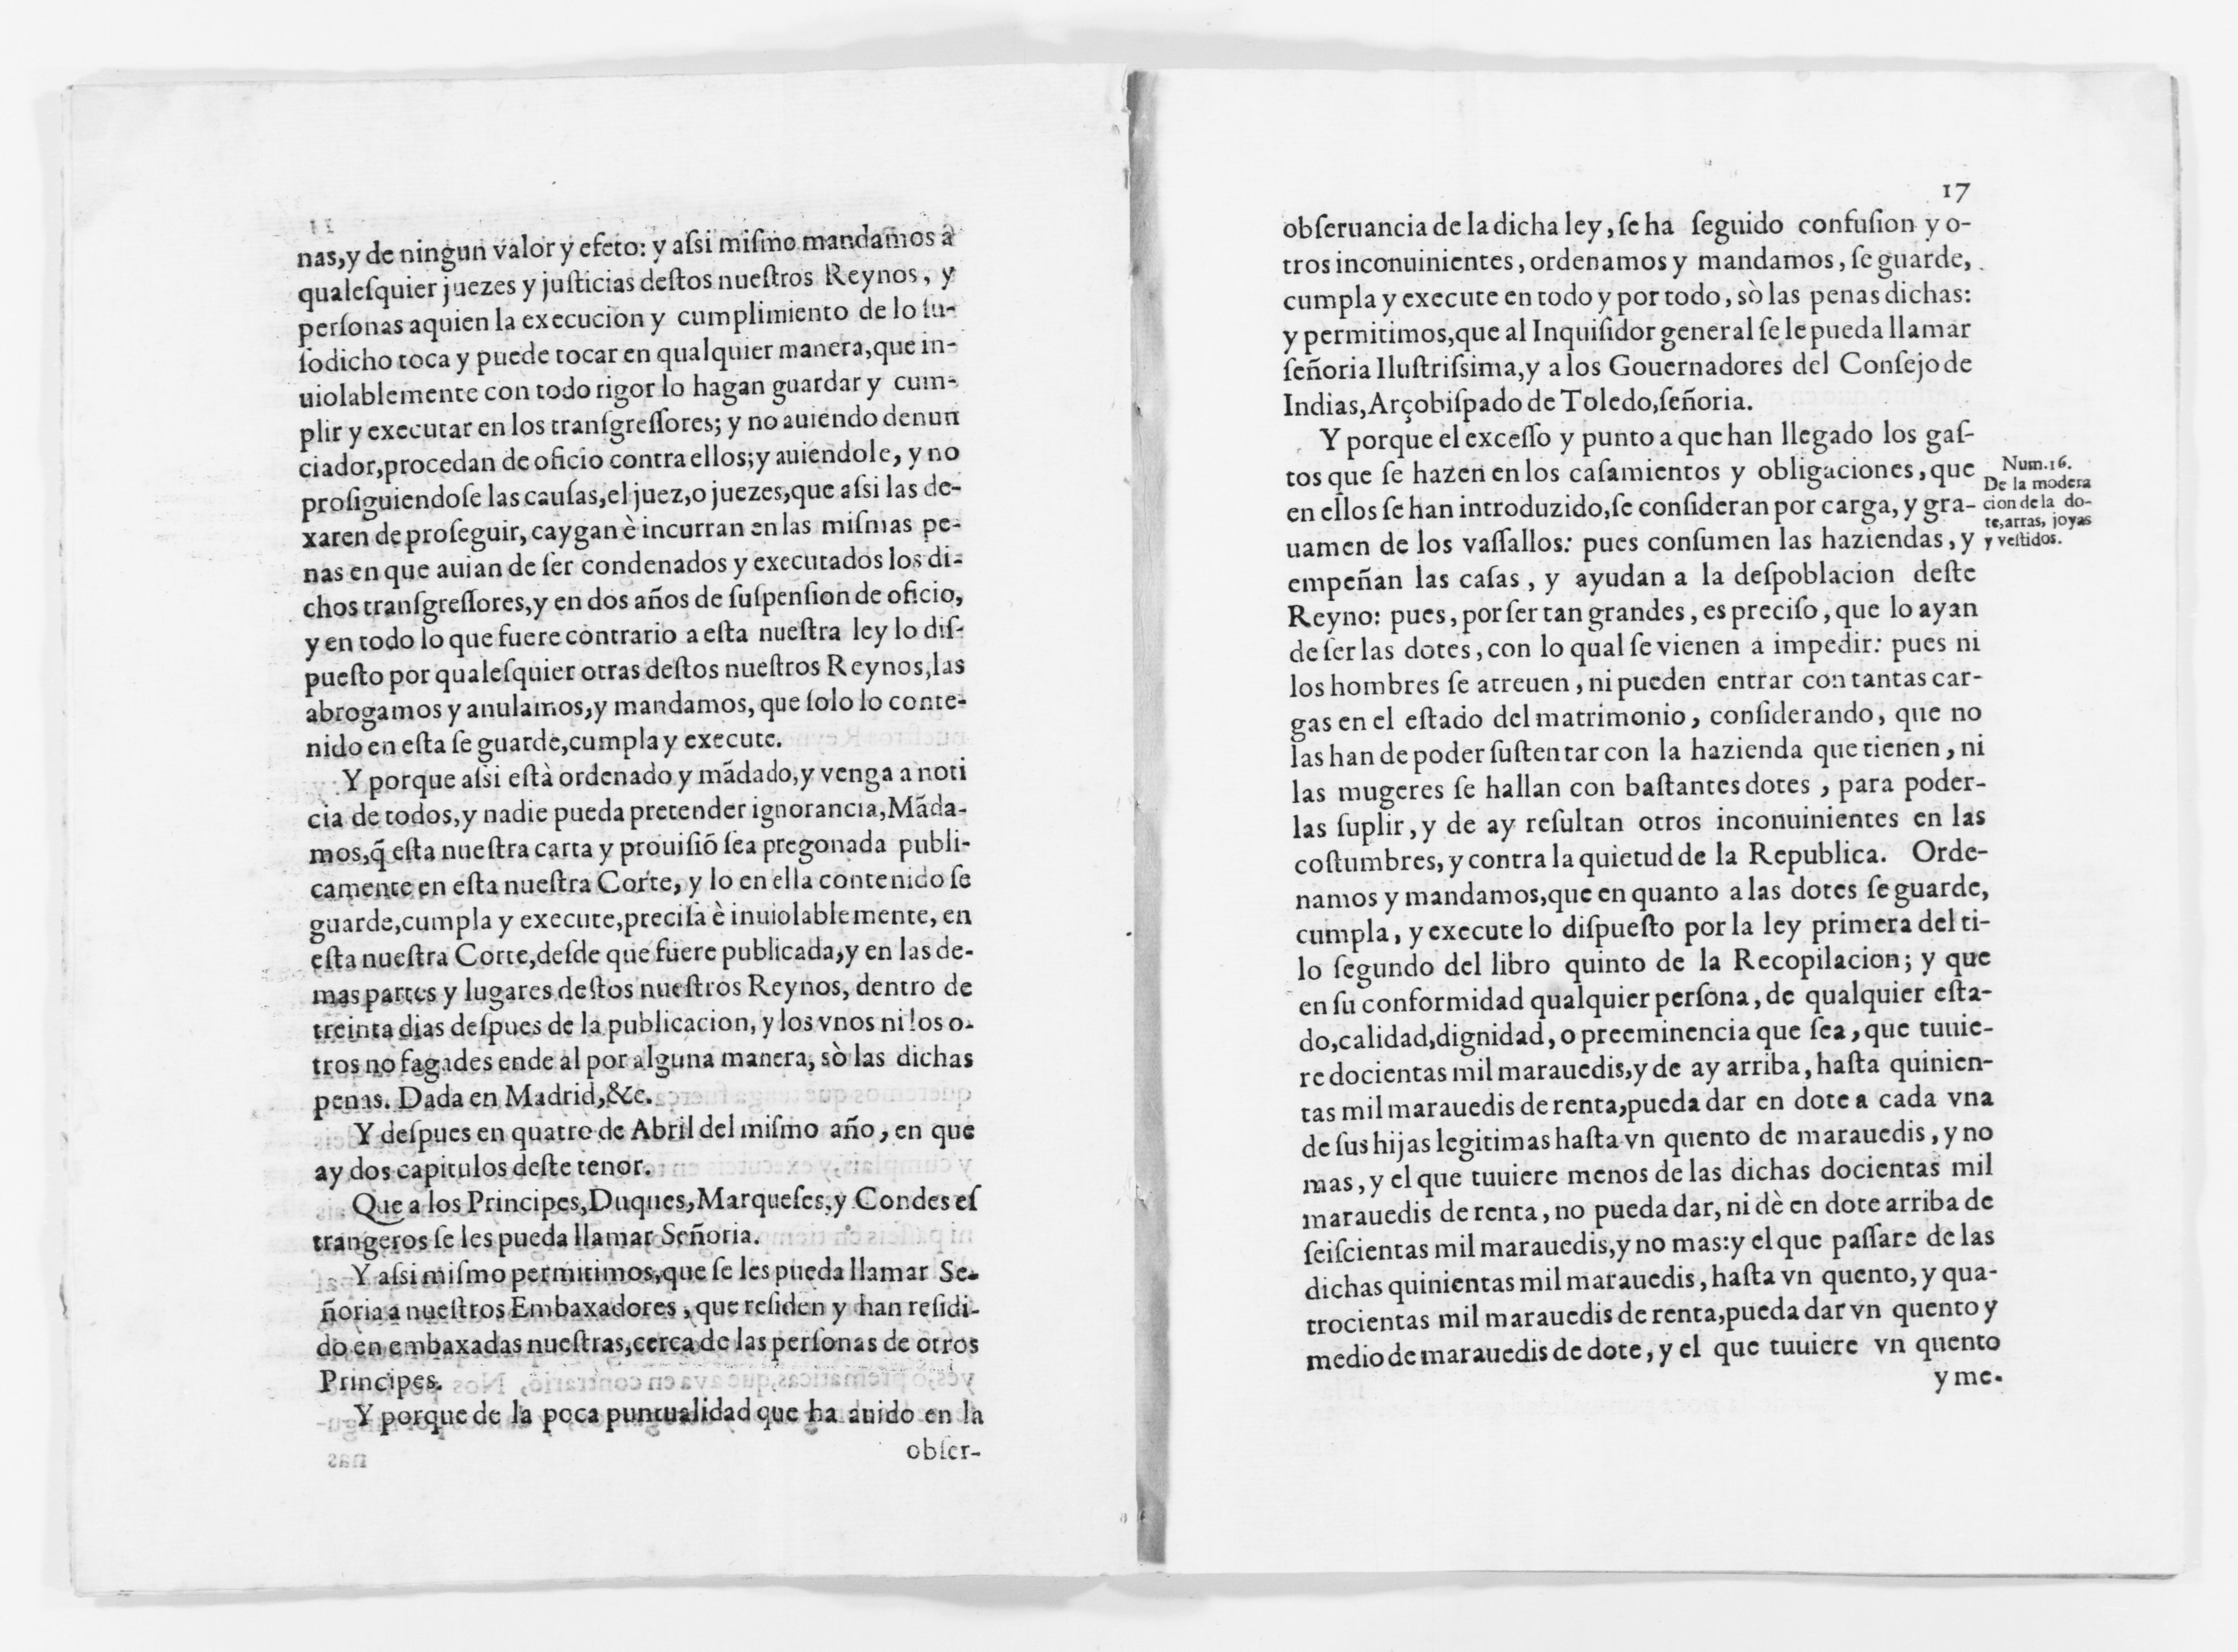 nas,y de ningun valor y efeto: y aſsi miſmo mandamos a
qualeſquier juezes y juſticias deſtos nueſtros Reynos, y
perſonas aquien la execucion y cumplimiento de lo ſu-
ſodicho toca y puede tocar en qualquier manera,que in-
uiolablemente con todo rigor lo hagan guardar y cum-
plir y executar en los tranſgreſſores; y no auiendo denun
ciador,procedan de oficio contra ellos;y auiendole, y no
proſiguiendoſe las cauſas,el juez,o juezes,que aſsi las de-
xaren de proſeguir, caygan è incurran en las miſmas pe-
nas en que auian de ſer condenados y executados los di-
chos tranſgreſſores,y en dos años de ſuſpenſion de oficio,
y en todo lo que fuere contrario a eſta nueſtra ley lo diſ-
pueſto por qualeſquier otras deſtos nueſtros Reynos,las
abrogamos y anulamos,y mandamos, que ſolo lo conte-
nido en eſta ſe guarde,cumpla y execute.
Y porque aſsi eſtà ordenado y mãdado,y venga a noti
cia de todos,y nadie pueda pretender ignorancia,Mãda-
mos,q̃ eſta nueſtra carta y prouiſiõ ſea pregonada publi-
camente en eſta nueſtra Corte, y lo en ella contenido ſe
guarde,cumpla y execute,preciſa è inuiolablemente, en
eſta nueſtra Corte,deſde que fuere publicada,y en las de-
mas partes y lugares deſtos nueſtros Reynos, dentro de
treinta dias deſpues de la publicacion, y los vnos ni los o-
tros no fagades ende al por alguna manera, sò las dichas
penas. Dada en Madrid,&c.
Y deſpues en quatro de Abril del miſmo año, en que
ay dos capitulos deſte tenor.
Que a los Principes,Duques,Marqueſes,y Condes eſ
trangeros ſe les pueda llamar Señoria.
Y aſsi miſmo permitimos,que ſe les pueda llamar Se-
ñoria a nueſtros Embaxadores, que reſiden y han reſidi-
do en embaxadas nueſtras,cerca de las perſonas de otros
Principes.
Y porque de la poca puntualidad que ha auido en la
obſer-
17
obſeruancia de la dicha ley, ſe ha ſeguido confuſion y o-
tros inconuinientes, ordenamos y mandamos, ſe guarde,
cumpla y execute en todo y por todo, sò las penas dichas:
y permitimos,que al Inquiſidor general ſe le pueda llamar
ſeñoria Iluſtriſsima,y a los Gouernadores del Conſejo de
Indias,Arçobiſpado de Toledo,ſeñoria.
Y porque el exceſſo y punto a que han llegado los gaſ-
tos que ſe hazen en los caſamientos y obligaciones, que
en ellos ſe han introduzido,ſe conſideran por carga, y gra-
uamen de los vaſſallos: pues conſumen las haziendas, y
empeñan las caſas, y ayudan a la deſpoblacion deſte
Reyno: pues, por ſer tan grandes, es preciſo, que lo ayan
de ſer las dotes, con lo qual ſe vienen a impedir: pues ni
los hombres ſe atreuen, ni pueden entrar con tantas car-
gas en el eſtado del matrimonio, conſiderando, que no
las han de poder ſuſtentar con la hazienda que tienen, ni
las mugeres ſe hallan con baſtantes dotes, para poder-
las ſuplir, y de ay reſultan otros inconuinientes en las
coſtumbres, y contra la quietud de la Republica. Orde-
namos y mandamos,que en quanto a las dotes ſe guarde,
cumpla, y execute lo diſpueſto por la ley primera del ti-
lo ſegundo del libro quinto de la Recopilacion; y que
en ſu conformidad qualquier perſona, de qualquier eſta-
do,calidad,dignidad, o preeminencia que ſea, que tuuie-
re docientas mil marauedis,y de ay arriba, haſta quinien-
tas mil marauedis de renta,pueda dar en dote a cada vna
de ſus hijas legitimas haſta vn quento de marauedis, y no
mas, y el que tuuiere menos de las dichas docientas mil
marauedis de renta, no pueda dar, ni dè en dote arriba de
ſeiſcientas mil marauedis,y no mas:y el que paſſare de las
dichas quinientas mil marauedis, haſta vn quento, y qua-
trocientas mil marauedis de renta,pueda dar vn quento y
medio de marauedis de dote, y el que tuuiere vn quento
y me-
Num.16.
De la modera
cion de la do-
te,arras, joyas
y veſtidos.